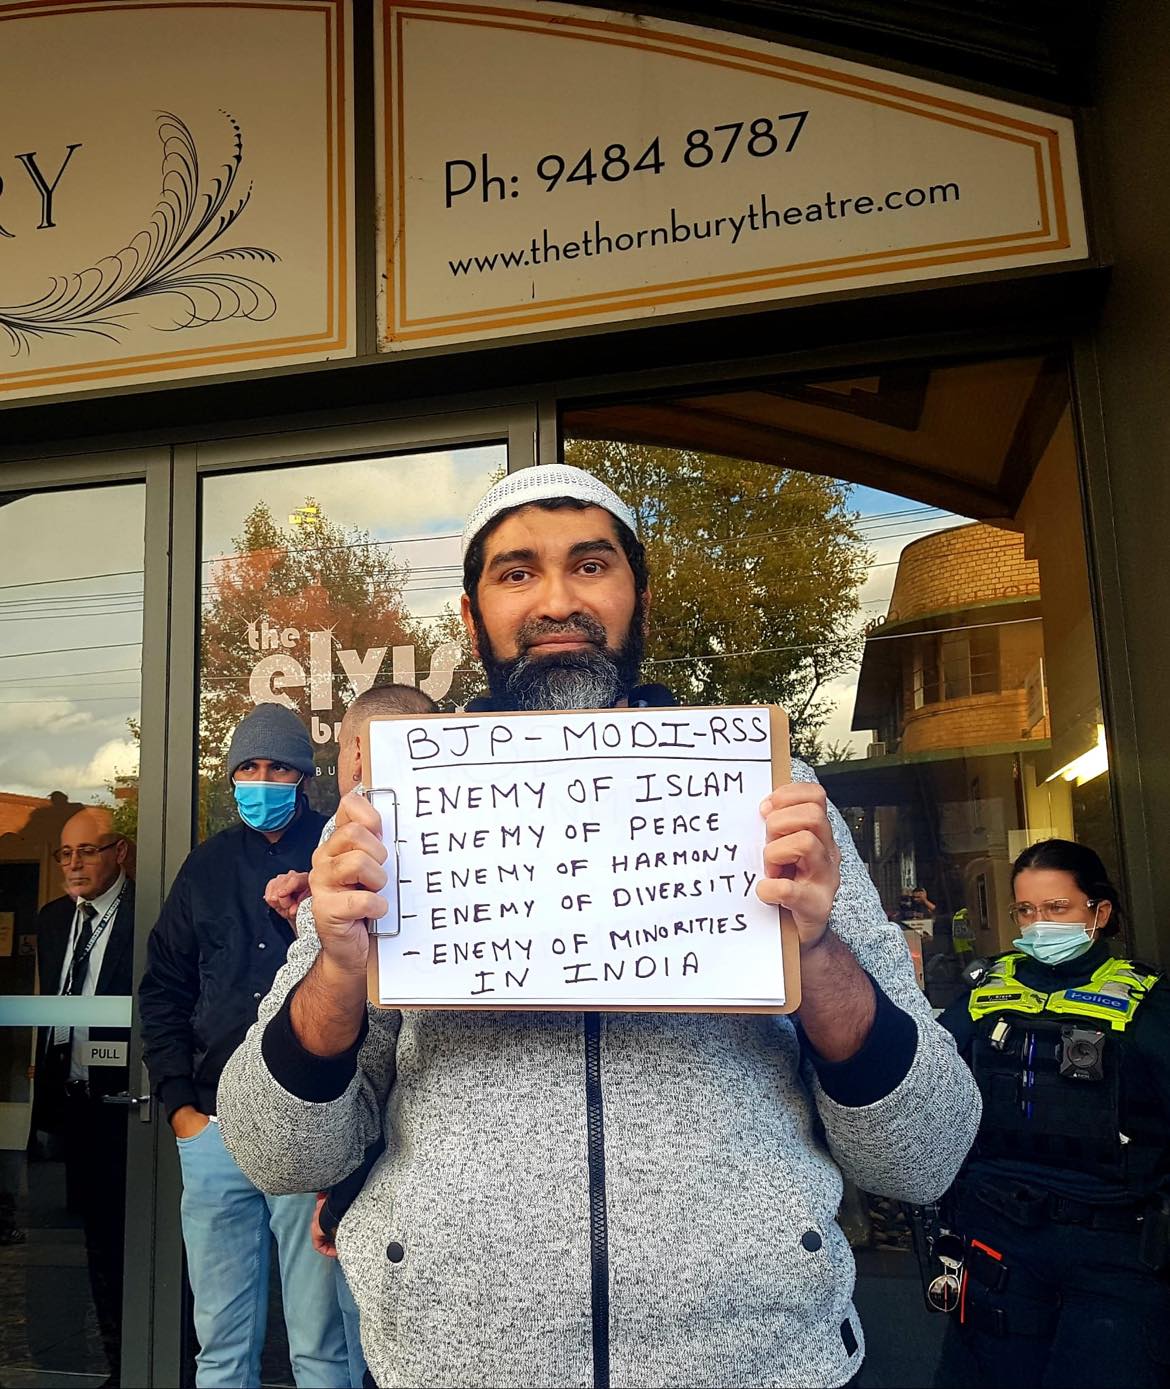 RY
Ph: 9484 8787
www.thethornburytheatre.com
the
elvis
BJP-MODI-RSS
ENEMY OF ISLAM
- ENEMY OF PEACE
- ENEMY OF HARMONY
- ENEMY OF DIVERSITY
- ENEMY OF MINORITIES
IN INDIA
Police
PULL